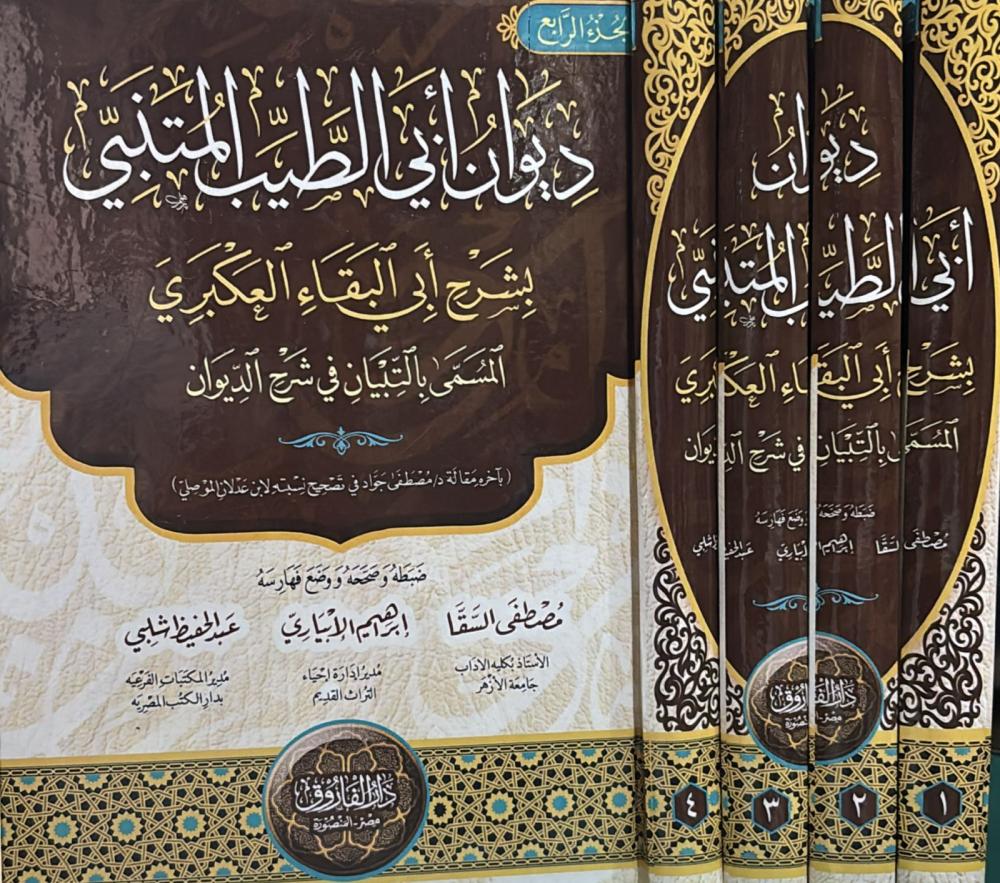 الجزء الرابع
ديوان أبي الطيب المتنبي
بشرح أبي البقاء العكبري
المسمى بالتبيان في شرح الديوان
(بآخره مقالة د/ مصطفى جواد في تصحيح نسبته لابن عدلان الموصلي)
ضبطه وصححه ووضع فهارسه
مصطفى السقا
الأستاذ بكلية الآداب
جامعة الأزهر
إبراهيم الإبياري
مدير إدارة إحياء
التراث القديم
عبد الحفيظ شلبي
مدير المكتبات الفرعية
بدار الكتب المصرية
دار الفاروق
مصر - المنصورة
ديوان
أبي الطيب المتنبي
بشرح أبي البقاء العكبري
المسمى بالتبيان في شرح الديوان
ضبطه وصححه ووضع فهارسه
مصطفى السقا إبراهيم الإبياري عبد الحفيظ شلبي
دار الفاروق
مصر - المنصورة
١ ٢ ٣ ٤